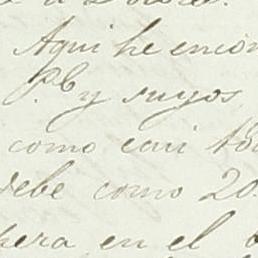 Aqui he encon
P. y suyos
como casi to
debe como 20.
pera en el